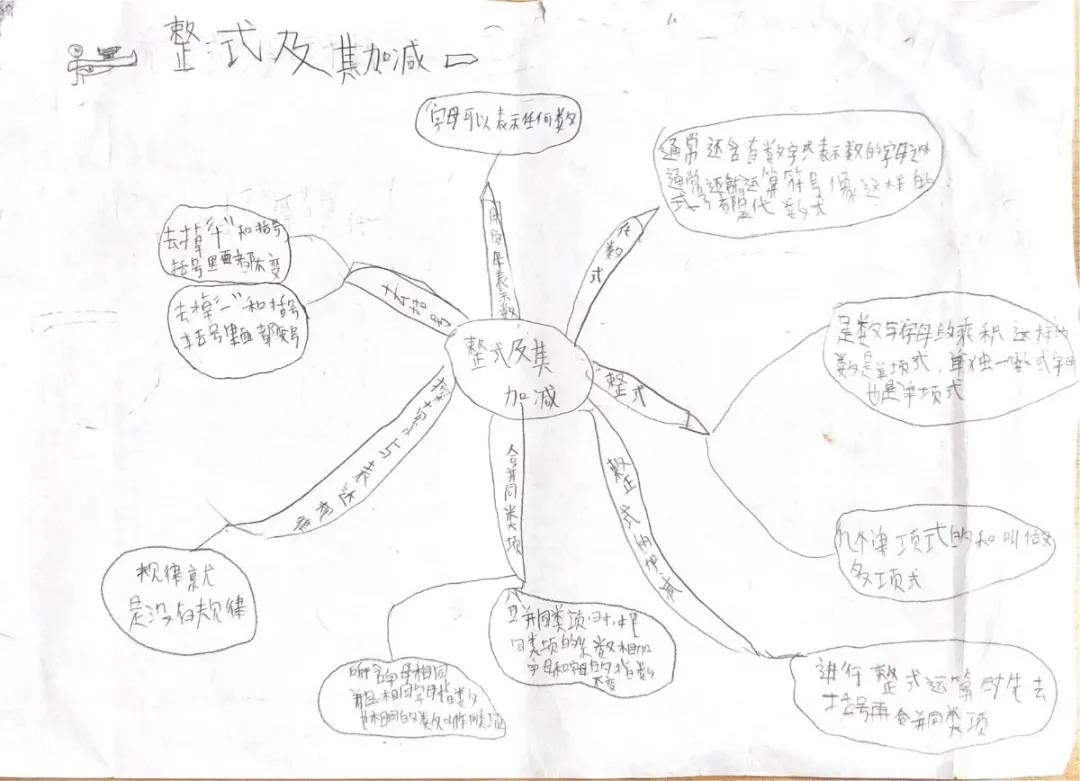 整式及其加减
字母可以表示任何数
用字母表示数
通常还含有数字或表示数的字母
通常还能运算符号像这样的
式子都是代数式
代数式
是数与字母的乘积这样的
数是单项式,单独一数或字母
也是单项式
整式
几个单项式的和叫做
多项式
去掉"+"和括号
括号里面都不变
去掉"-"和括号
括号里面都变号
去括号
整式及其
加减
探索与表达规律
规律就
是没有规律
合并同类项
所含字母相同
并且相同字母指数
合并同类项时,把
同类项的系数相加
字母和字母的指数
不变
整式的加减
进行整式运算时先去
括号再合并同类项